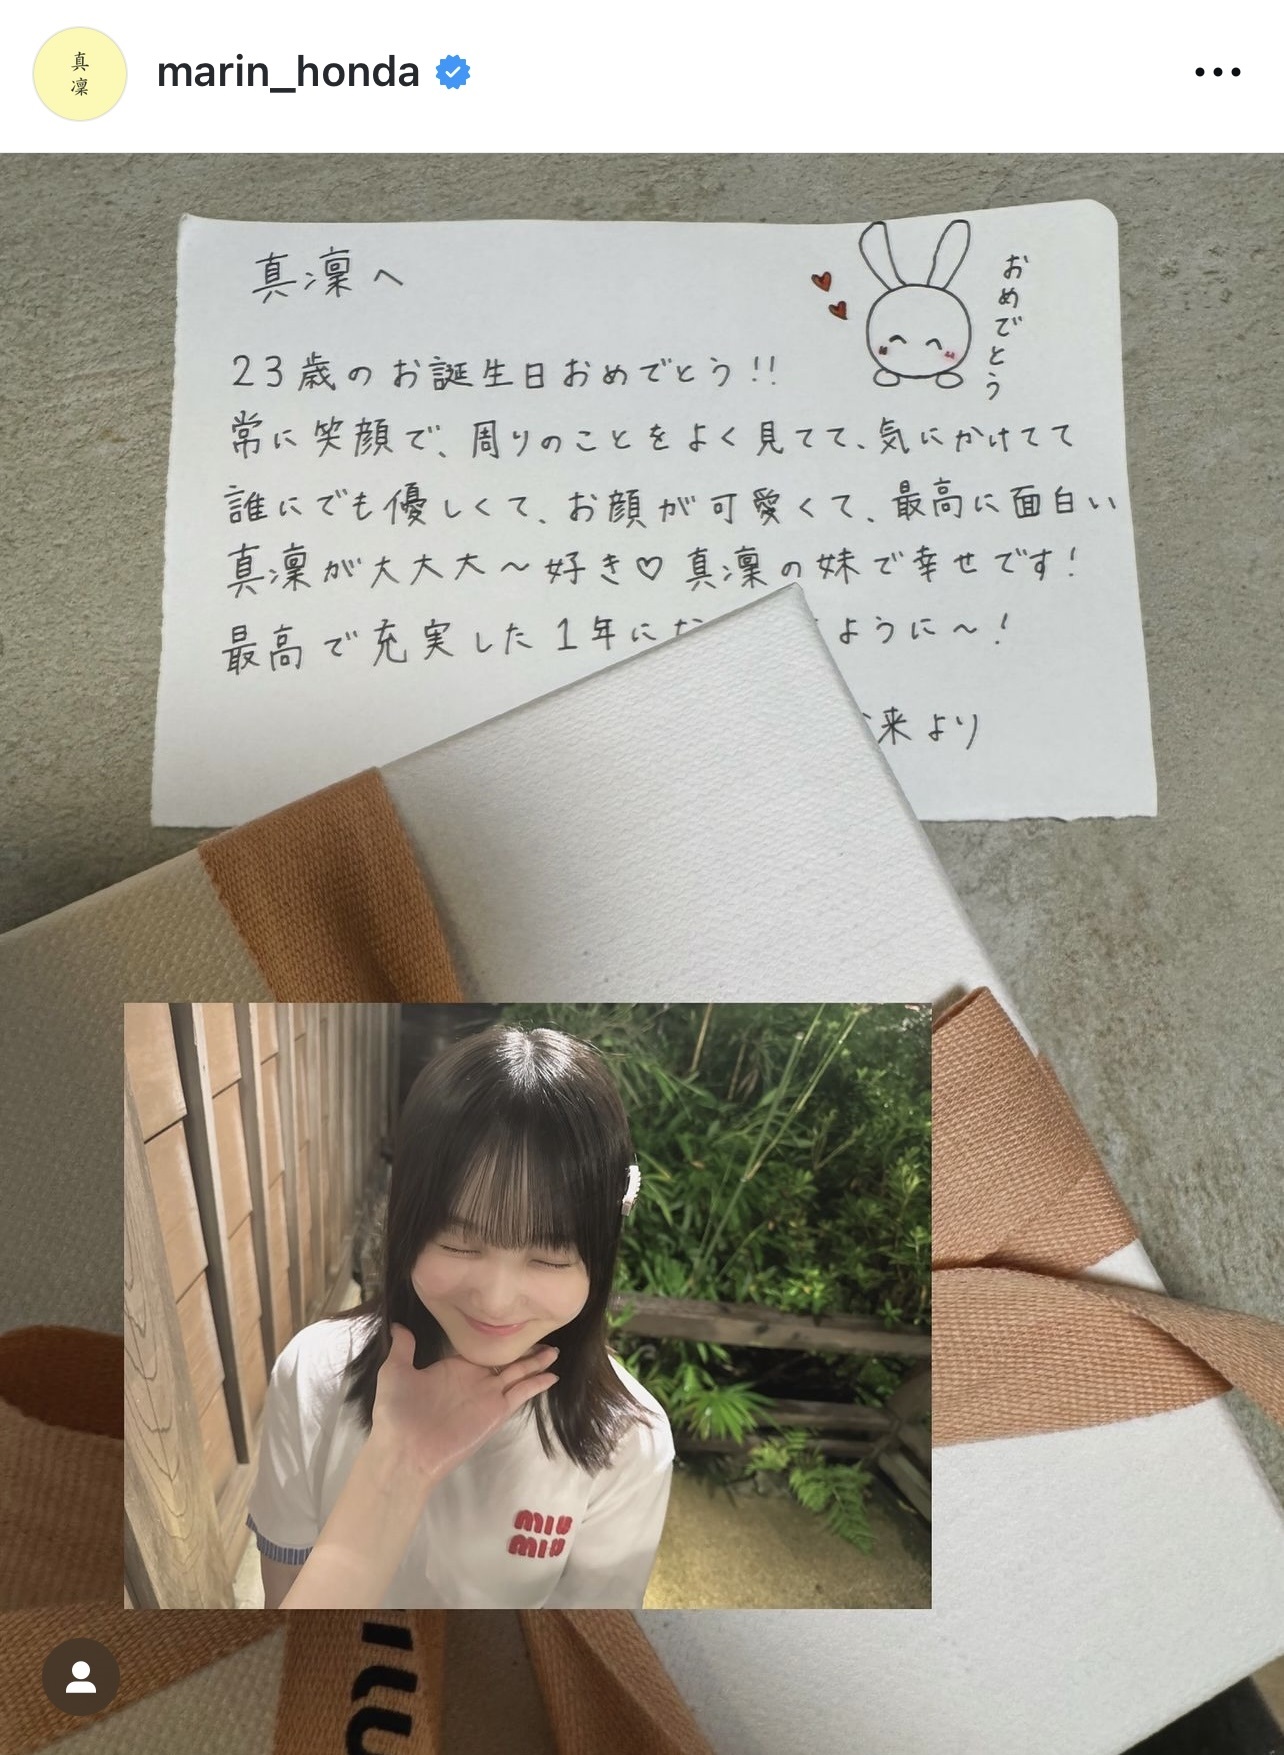 真
凜
marin_honda
真凜へ
おめでとう
23歳のお誕生日おめでとう!!
常に笑顔で、周りのことをよく見てて、気にかけてて
誰にでも優しくて、お顔が可愛くて、最高に面白い
真凜が大大大～好き♡真凜の妹で幸せです!
最高で充実した1年にな ように～!
来より
miu
miu
miu